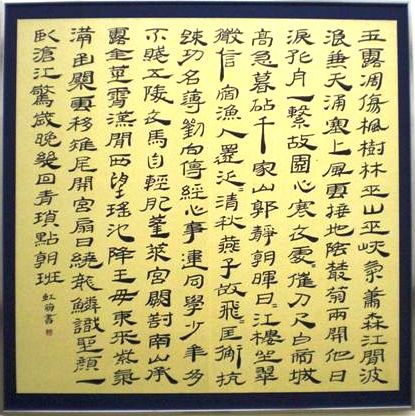 玉露凋傷楓樹林巫山巫峽氣蕭森江間波
浪兼天涌塞上風雲接地陰叢菊兩開他日
淚孤舟一繫故園心寒衣處々催刀尺白帝城
高急暮砧千家山郭靜朝暉日々江樓坐翠
微信宿漁人還泛々清秋燕子故飛々匡衡抗
疏功名薄劉向傳經心事違同學少年多
不賤五陵衣馬自輕肥蓬萊宮闕對南山承
露金莖霄漢間西望瑤池降王母東來紫氣
滿函關雲移雉尾開宮扇日繞龍鱗識聖顏一
臥滄江驚歲晚幾回青瑣點朝班